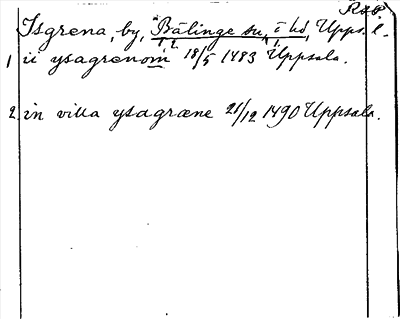 RAP
Isgrena, by, Bälinge sn, i hd, Upps. l.
1 ii ysagrenom 18/5 1483 Uppsala.
2 in villa ysagræne 21/12 1490 Uppsala.